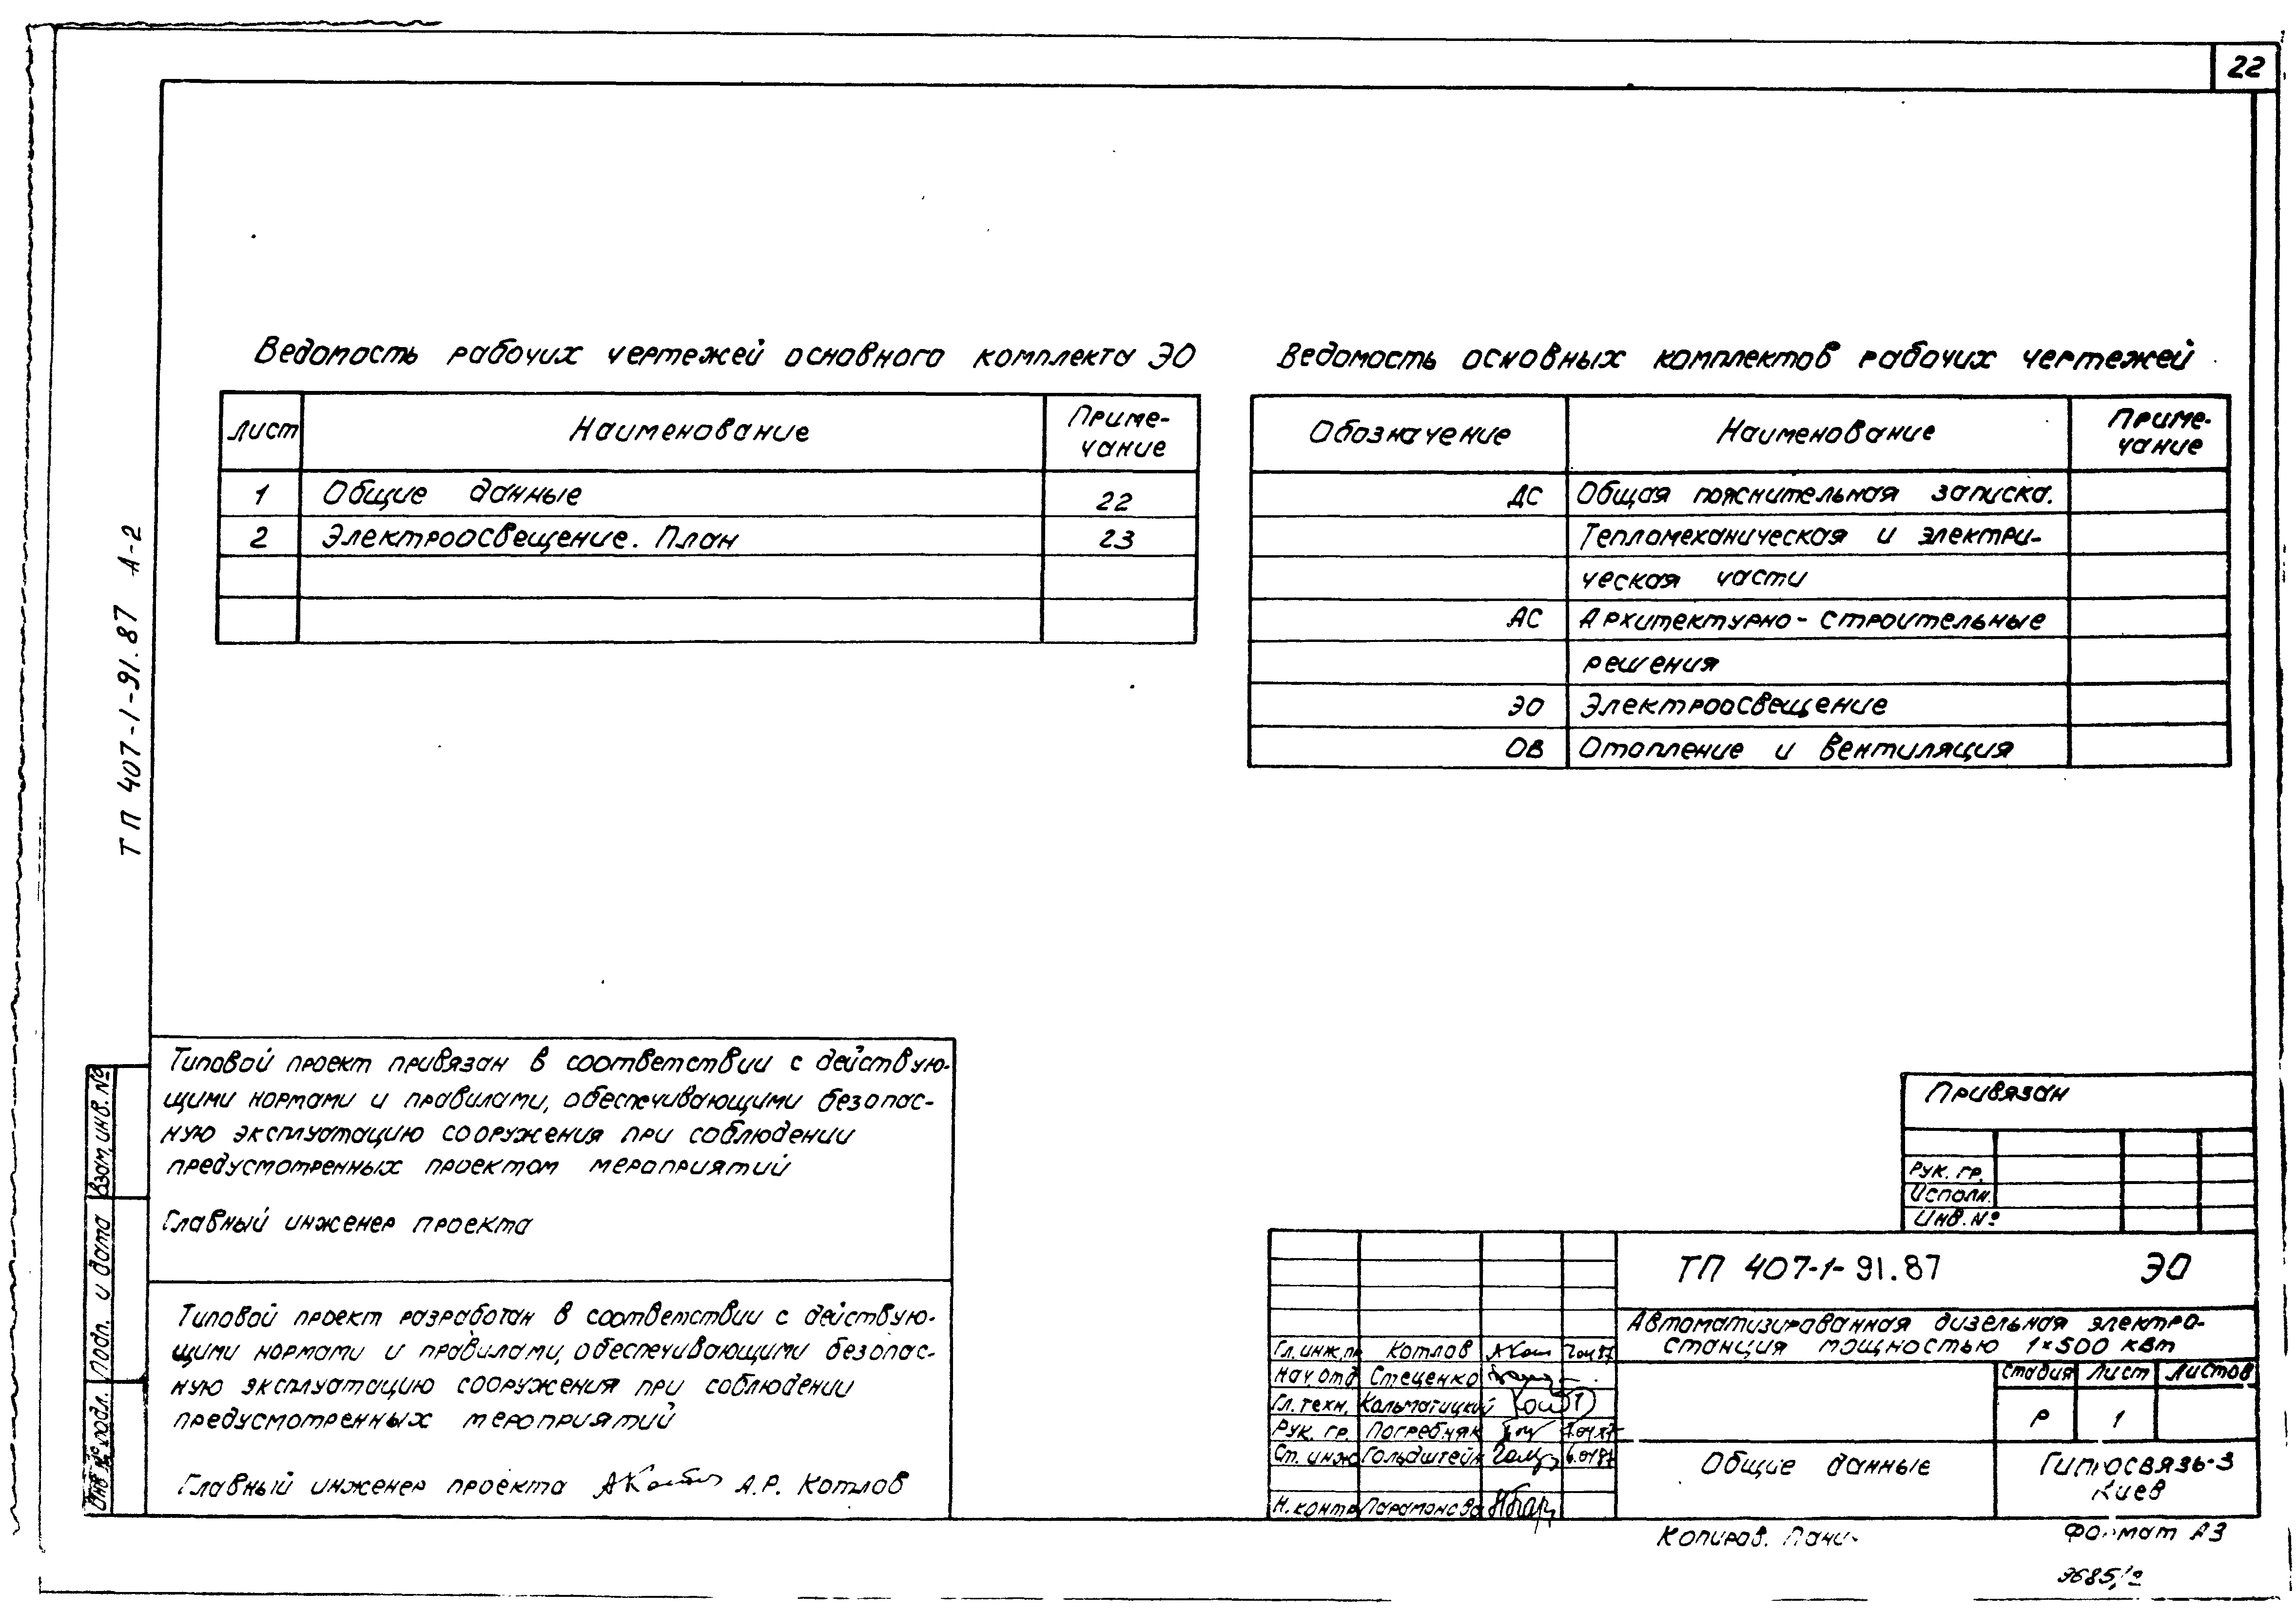 22
Ведомость рабочих чертежей основного комплекта ЭО
Лист
Наименование
Приме-
чание
1
Общие данные
22
2
Электроосвещение. План
23
Ведомость основных комплектов рабочих чертежей
Обозначение
Наименование
Приме-
чание
ДС
Общая пояснительная записка.
Тепломеханическая и электри-
ческая части
АС
Архитектурно-строительные
решения
ЭО
Электроосвещение
ОВ
Отопление и вентиляция
ТП 407-1-91.87 А-2
Типовой проект привязан в соответствии с действую-
щими нормами и правилами, обеспечивающими безопас-
ную эксплуатацию сооружения при соблюдении
предусмотренных проектом мероприятий
Главный инженер проекта
Типовой проект разработан в соответствии с действую-
щими нормами и правилами, обеспечивающими безопас-
ную эксплуатацию сооружения при соблюдении
предусмотренных мероприятий
Главный инженер проекта А.Р. Котлов
Взам. инв. №
Подп. и дата
Инв № подл.
Привязан
Рук. гр.
Исполн.
Инв. №
ТП 407-1-91.87 ЭО
Автоматизированная дизельная электро-
станция мощностью 1×500 кВт
Гл. инж. пр. Котлов
Нач. отд Стеценко
Гл. техн. Кальматицкий
Рук. гр. Погребняк
Ст. инж Гольдштейн
Н. контр Парамонова
Стадия Лист Листов
Р 1
Общие данные
Гипросвязь-3
Киев
Копиров.
Формат А3